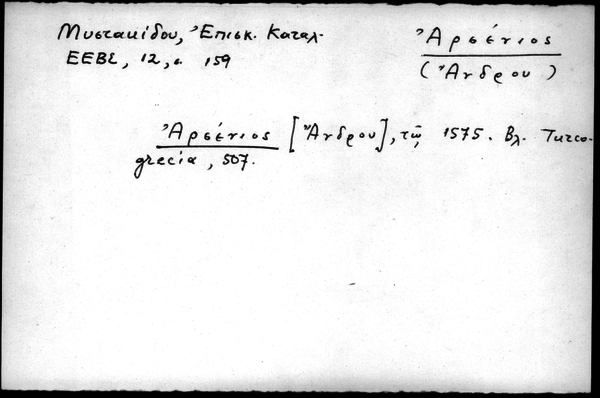 Μυστακίδου, Ἐπισκ. Καταλ.
ΕΕΒΣ, 12, σ. 159
Ἀρσένιος
(Ἄνδρου)
Ἀρσένιος [Ἄνδρου], τῷ 1575. Βλ. Turco-
grecia, 507.